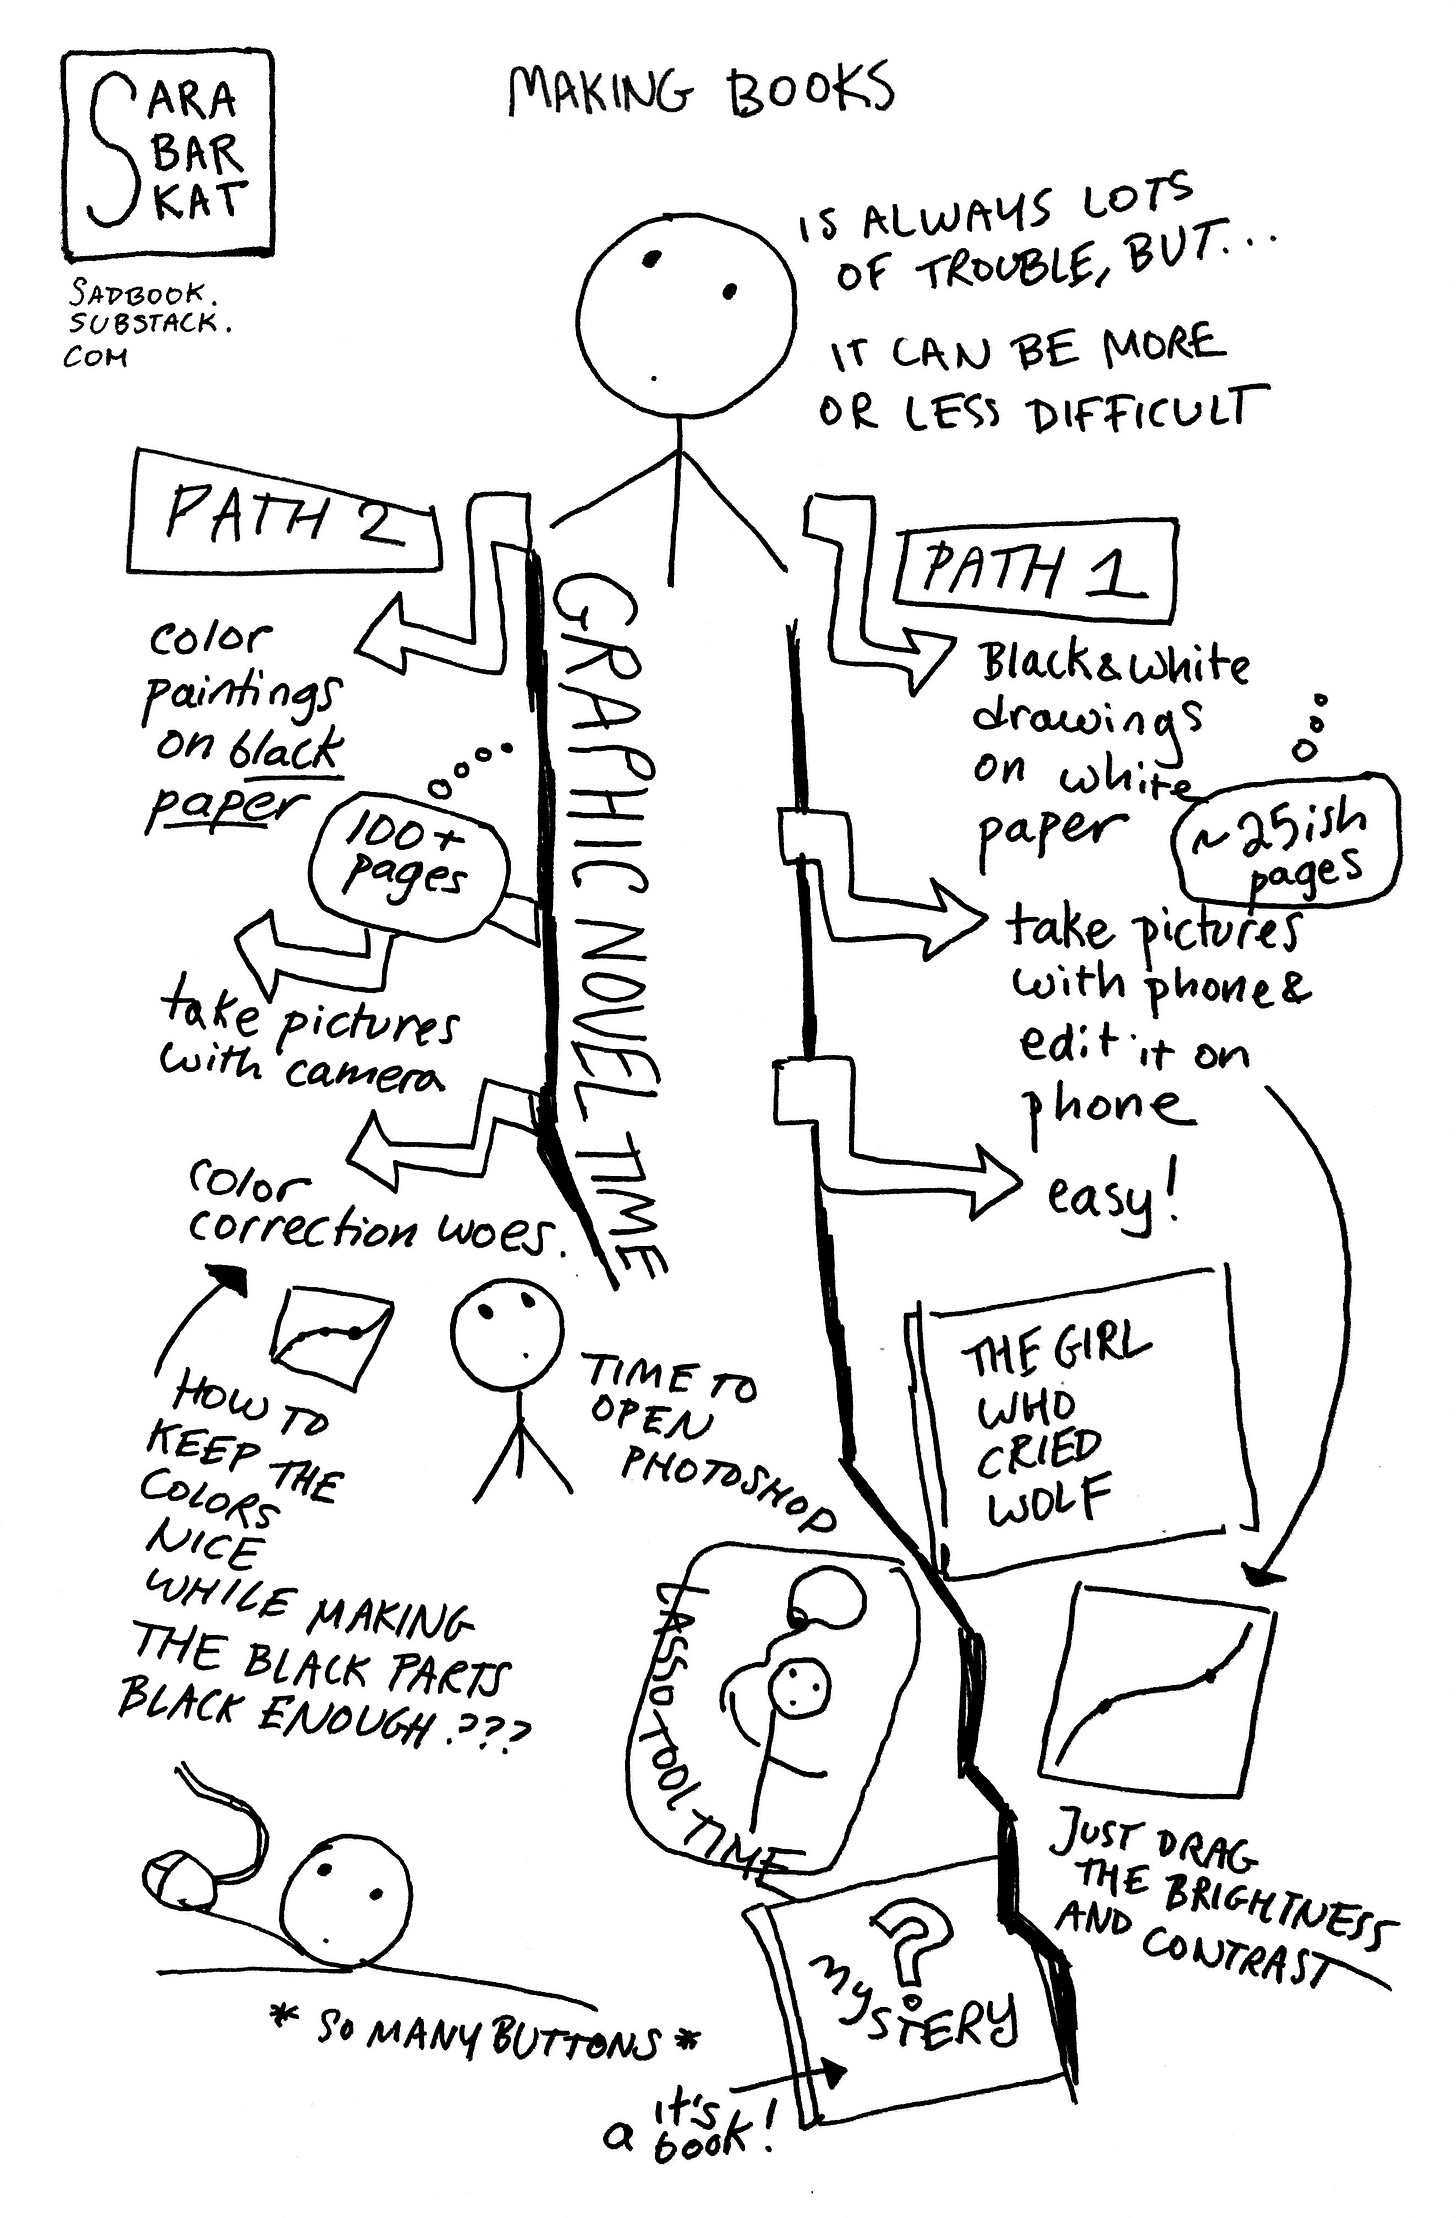 SARA
BAR
KAT
SADBOOK.
SUBSTACK.
COM
MAKING BOOKS
IS ALWAYS LOTS
OF TROUBLE, BUT...
IT CAN BE MORE
OR LESS DIFFICULT
PATH 2
color
paintings
on black
paper
100+
pages
take pictures
with camera
color
correction woes.
HOW TO
KEEP THE
COLORS
NICE
WHILE MAKING
THE BLACK PARTS
BLACK ENOUGH.???
GRAPHIC NOVEL TIME
PATH 1
Black & white
drawings
on white
paper
~25ish
pages
take pictures
with phone &
edit it on
phone
easy!
THE GIRL
WHO
CRIED
WOLF
TIME TO
OPEN
PHOTOSHOP
LASSO TOOL TIME
JUST DRAG
THE BRIGHTNESS
AND CONTRAST
* SO MANY BUTTONS *
?
MYSTERY
it's
a book!